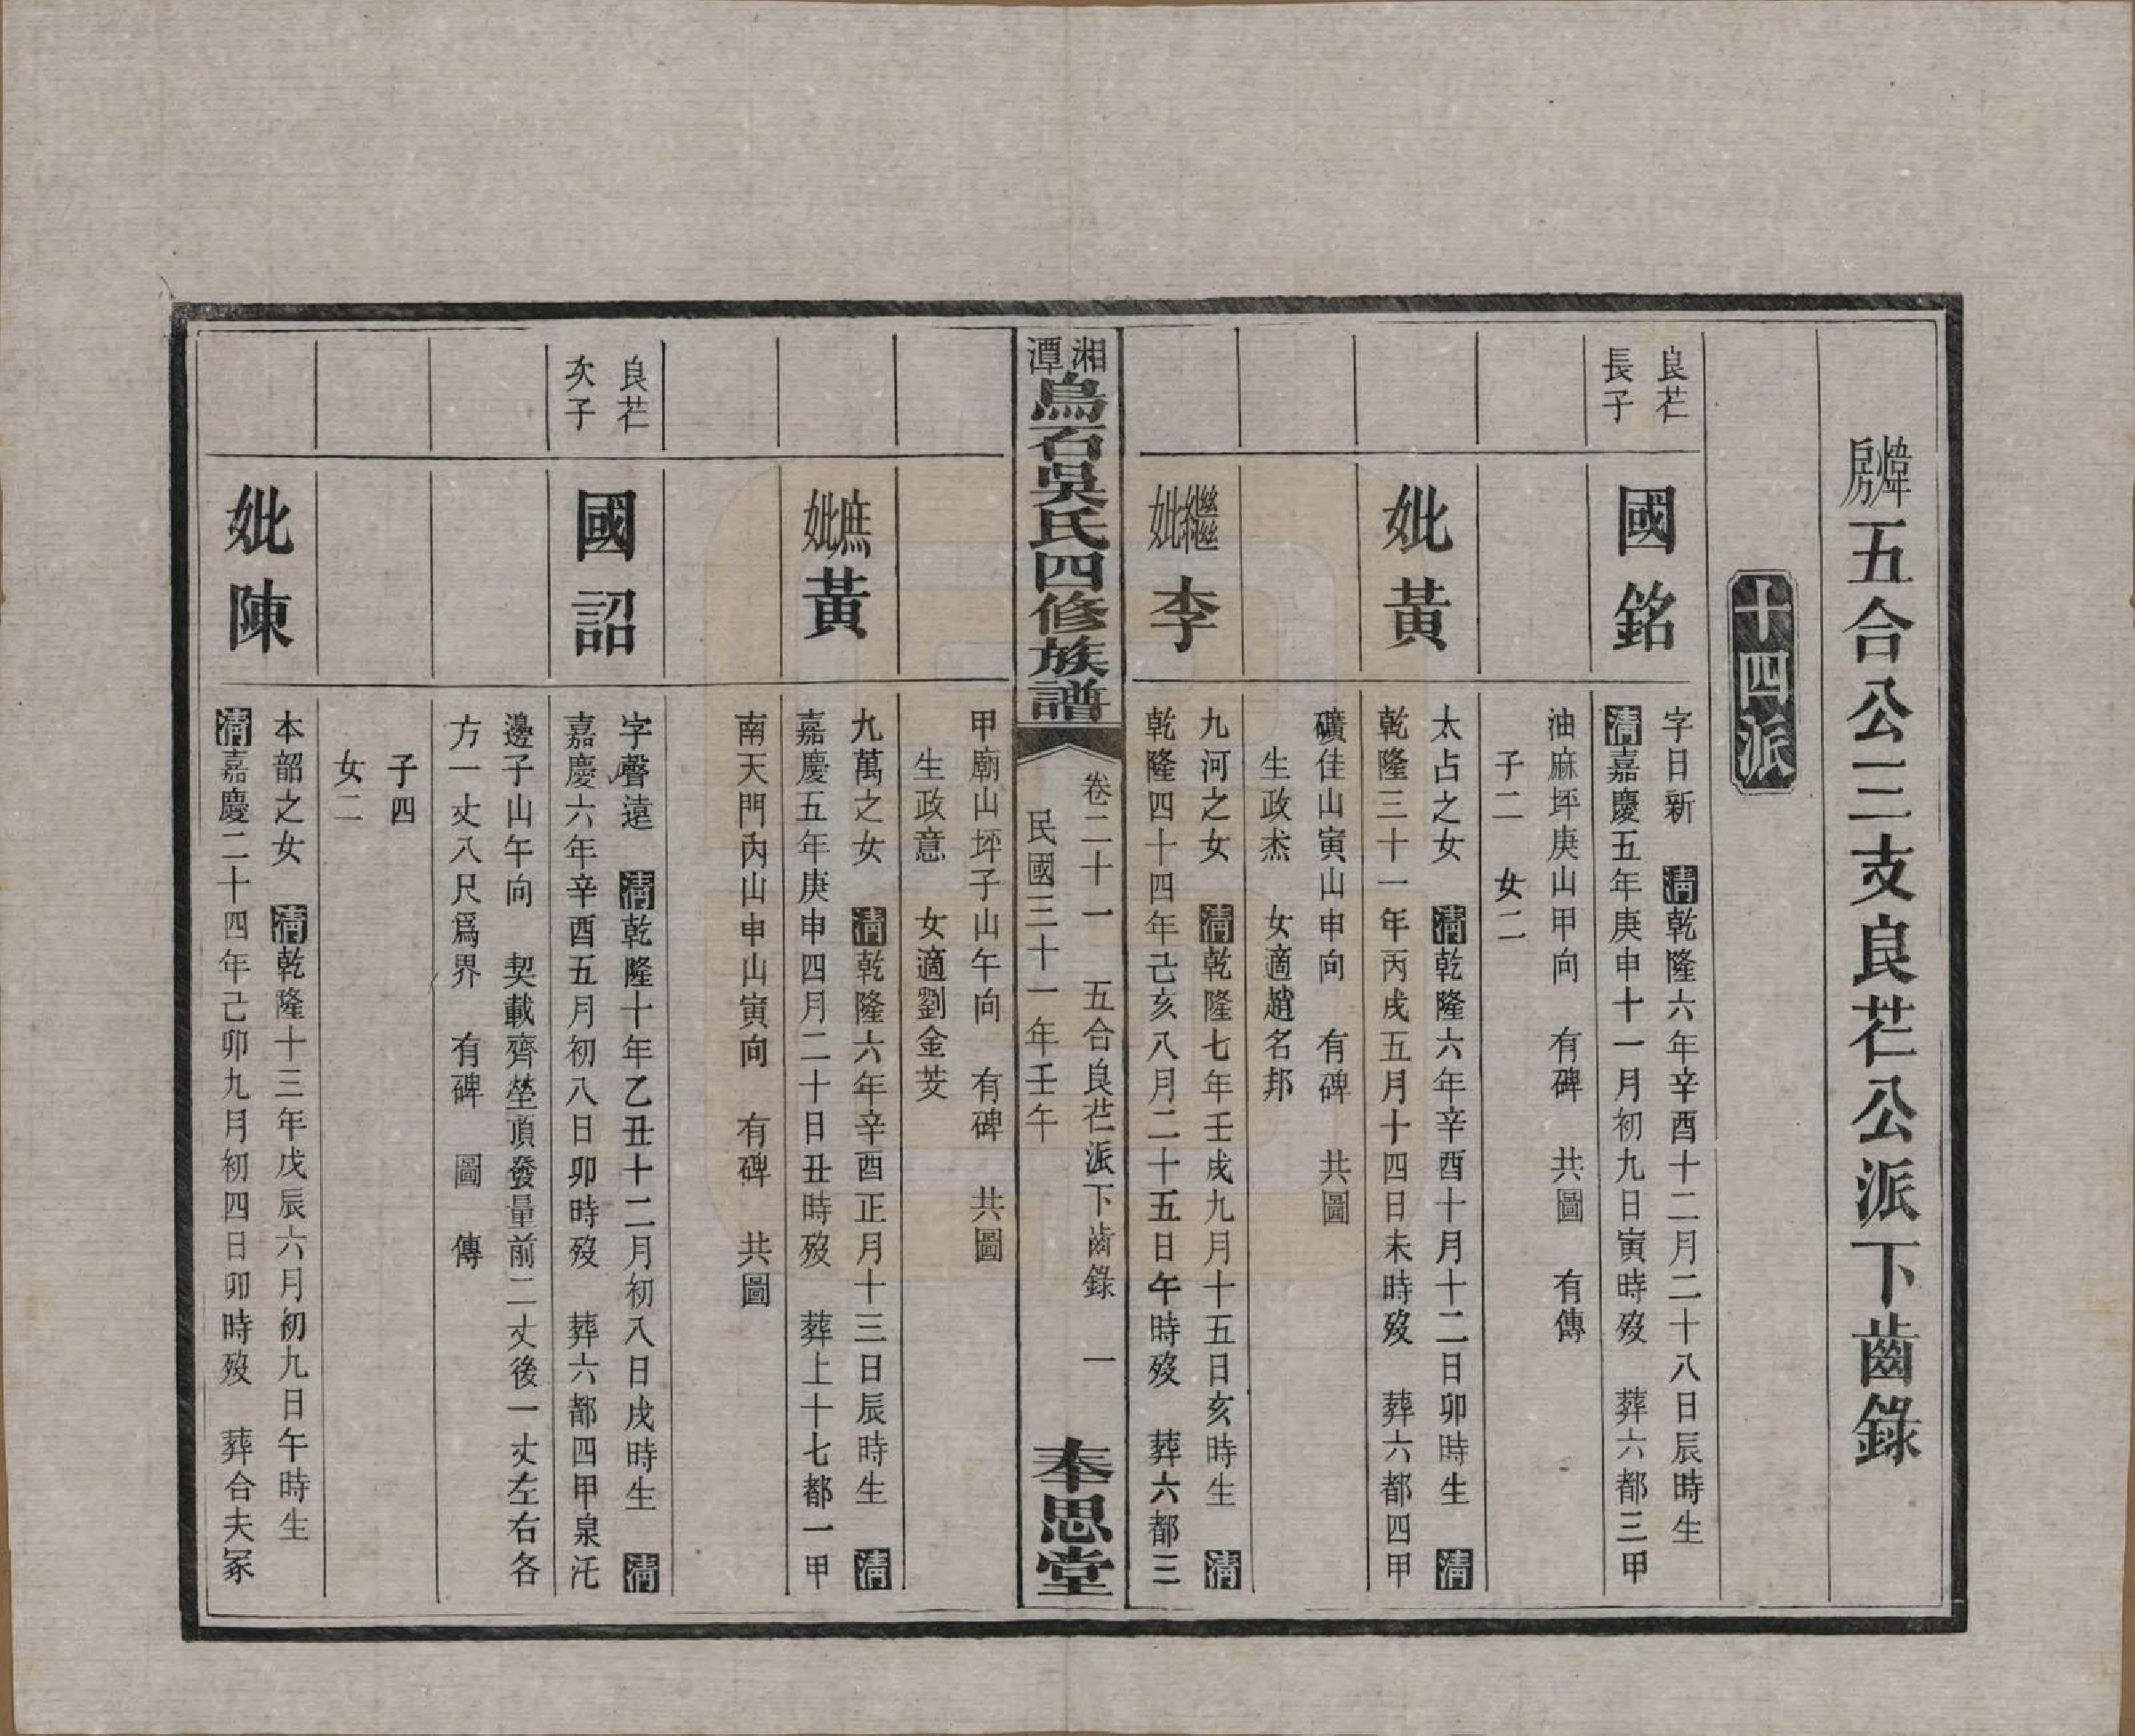 煒房五合公三支良芢公派下齒錄
十四派
良芢
長子
國銘
字日新　清乾隆六年辛酉十二月二十八日辰時生
清嘉慶五年庚申十一月初九日寅時歿　葬六都三甲
油麻坪庚山甲向　有碑　共圖　有傳
子二　女二
妣黃
太占之女　清乾隆六年辛酉十月十二日卯時生　清
乾隆三十一年丙戌五月十四日未時歿　葬六都四甲
礦佳山寅山申向　有碑　共圖
生政杰　女適趙名邦
繼妣李
九河之女　清乾隆七年壬戌九月十五日亥時生　清
乾隆四十四年己亥八月二十五日午時歿　葬六都三
湘潭烏石吳氏四修族譜
卷二十一　五合良芢派下齒錄　一
民國三十一年壬午
奉思堂
甲廟山坪子山午向　有碑　共圖
生政意　女適劉金芠
庶妣黃
九萬之女　清乾隆六年辛酉正月十三日辰時生　清
嘉慶五年庚申四月二十日丑時歿　葬上十七都一甲
南天門內山申山寅向　有碑　共圖
良芢
次子
國詔
字聲遠　清乾隆十年乙丑十二月初八日戌時生　清
嘉慶六年辛酉五月初八日卯時歿　葬六都四甲泉汑
邊子山午向　契載齊塋頂發量前二丈後一丈左右各
方一丈八尺爲界　有碑　圖　傳
子四
女二
妣陳
本韶之女　清乾隆十三年戊辰六月初九日午時生
清嘉慶二十四年己卯九月初四日卯時歿　葬合夫冢